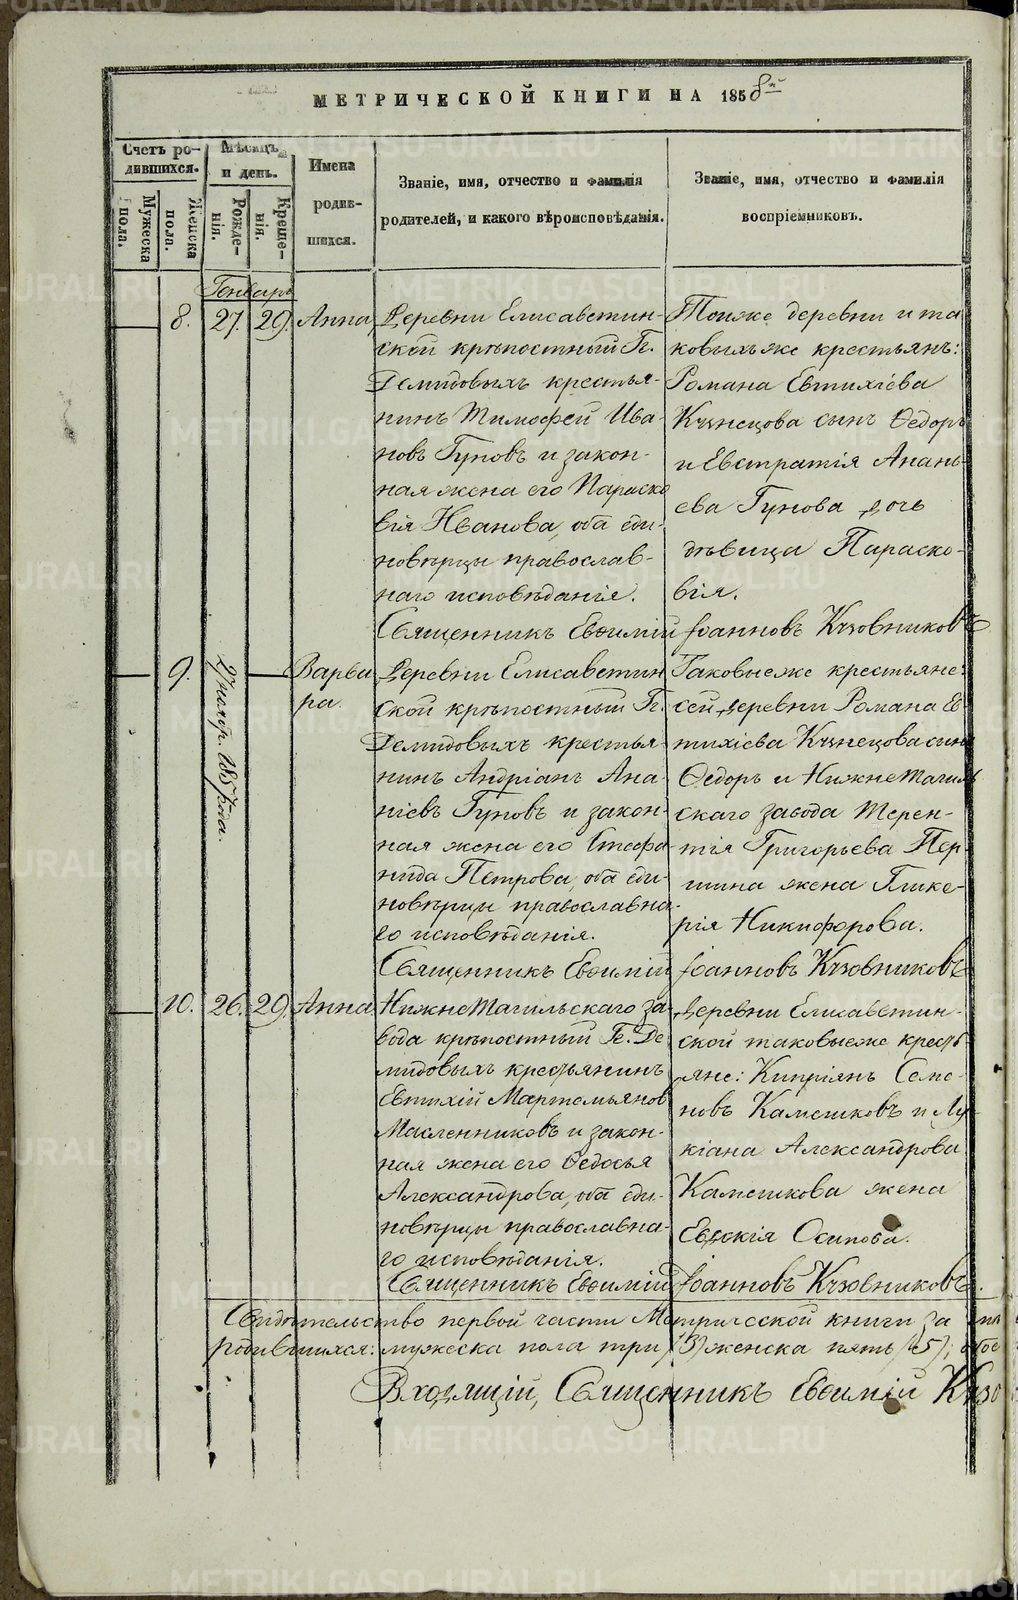 МЕТРИЧЕСКОЙ КНИГИ НА 1858й
Счетъ ро-
дившихся.
Мужеска
пола.
Женска
пола.
Мѣсяцъ
и день.
Рожде-
нія.
Креще-
нія.
Имена
родив-
шихся.
Званіе, имя, отчество и фамилія
родителей, и какого вѣроисповѣданія.
Званіе, имя, отчество и фамилія
воспріемниковъ.
Генварь
8. 27. 29. Анна
Деревни Елисаветин-
ской крѣпостный Гг.
Демидовыхъ крестья-
нинъ Тимофей Ива-
новъ Гуновъ и закон-
ная жена его Параско
вія Иванова, оба еди-
новѣрцы православ-
наго исповѣданія.
Тояже деревни и та
ковыхъже крестьянъ:
Романа Евтихіева
Кузнецова сынъ Ѳедоръ
и Евстратія Анань-
ева Гунова дочь
дѣвица Параско-
вія.
Священникъ Евѳимій Іоанновъ Кузовниковъ
9. Варва
ра.
Деревни Елисаветин
ской крѣпостный Гг.
Демидовыхъ крестья-
нинъ Андріанъ Ана-
ніевъ Гуновъ и закон-
ная жена его Стефа
нида Петрова, оба еди-
новѣрцы православна-
го исповѣданія.
Таковыеже крестьяне:
сей деревни Романа Ев
тихіева Кузнецова сынъ
Ѳедоръ и Нижнетагиль
скаго завода Терен-
тія Григорьева Пер
шина жена Глике-
рія Никифорова.
Священникъ Евѳимій Іоанновъ Кузовниковъ
10. 26. 29. Анна
Нижнетагильскаго за-
вода крѣпостный Гг. Де
мидовыхъ крестьянинъ
Евтихій Мартемьянов
Масленниковъ и закон-
ная жена его Ѳедосья
Александрова, оба еди-
новѣрцы православна-
го исповѣданія.
Деревни Елисаветин-
ской таковыеже кресть-
яне: Кипріянъ Семе-
новъ Камешковъ и Лу-
кіана Александрова
Камешкова жена
Евдокія Осипова.
Священникъ Евѳимій Іоанновъ Кузовниковъ.
Свидѣтельство первой части Метрической книги за
родившихся: мужеска пола три /3/ женска пять /5/; обое
Входящій, Священникъ Евѳимій Кузо